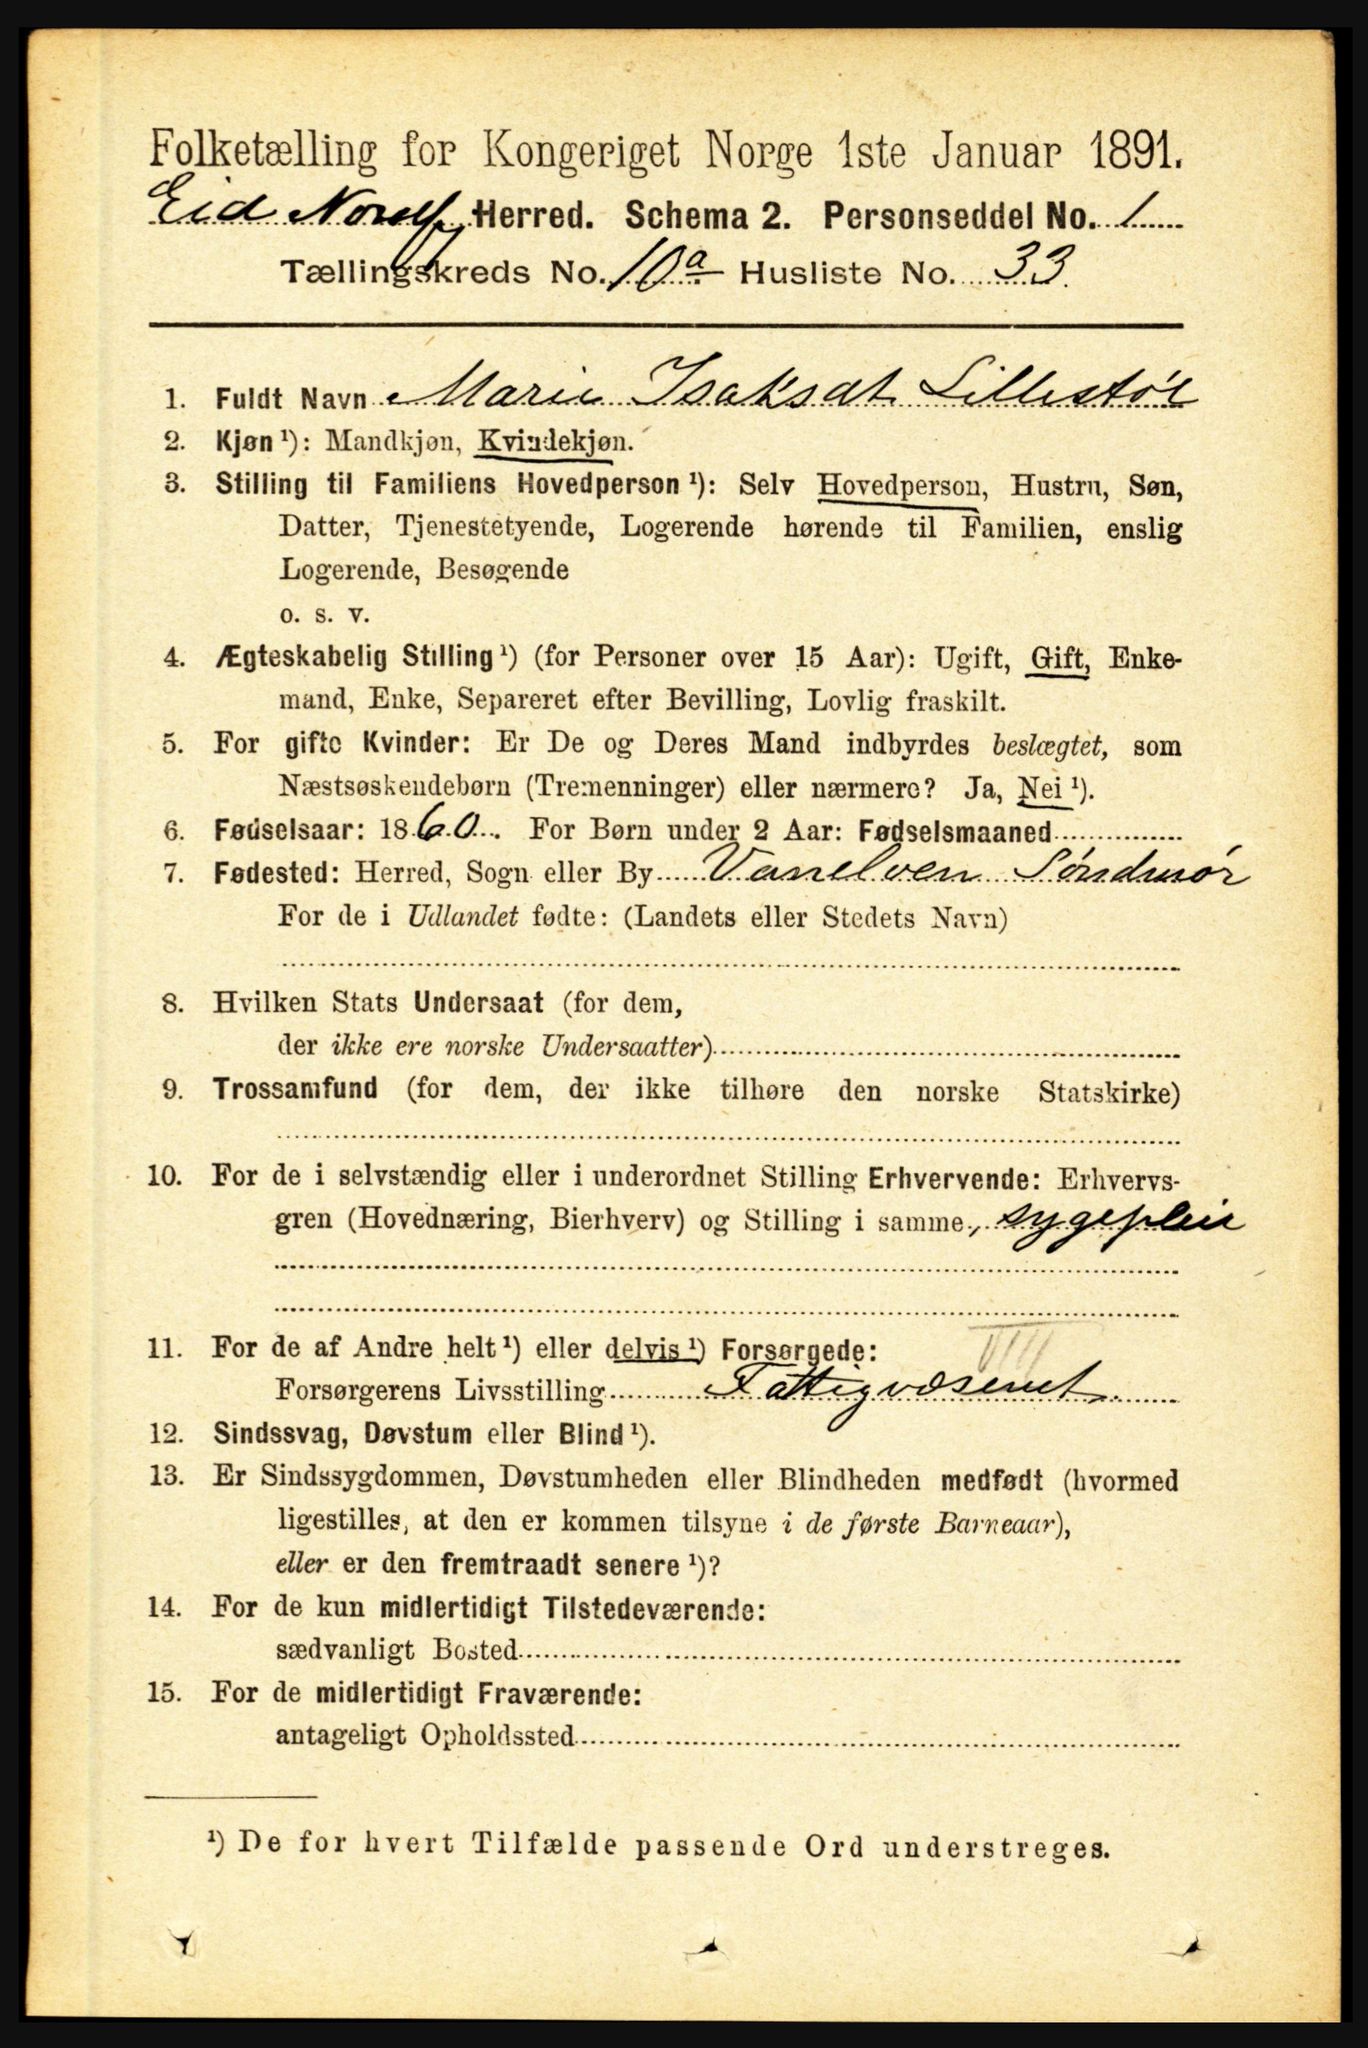 Folketælling for Kongeriget Norge 1ste Januar 1891.
Eid Nordf Herred. Schema 2. Personseddel No. 1
Tællingskreds No. 10a Husliste No. 33.
1. Fuldt Navn Marie Isaksdt Lillestøl
2. Kjøn ¹): Mandkjøn, Kvindekjøn.
3. Stilling til Familiens Hovedperson ¹): Selv Hovedperson, Hustru, Søn,
Datter, Tjenestetyende, Logerende hørende til Familien, enslig
Logerende, Besøgende
o. s. v.
4. Ægteskabelig Stilling ¹) (for Personer over 15 Aar): Ugift, Gift, Enke-
mand, Enke, Separeret efter Bevilling, Lovlig fraskilt.
5. For gifte Kvinder: Er De og Deres Mand indbyrdes beslægtet, som
Næstsøskendebørn (Tremenninger) eller nærmere? Ja, Nei ¹).
6. Fødselsaar: 1860. For Børn under 2 Aar: Fødselsmaaned
7. Fødested: Herred, Sogn eller By Vanelven Søndmør
For de i Udlandet fødte: (Landets eller Stedets Navn)
8. Hvilken Stats Undersaat (for dem,
der ikke ere norske Undersaatter)
9. Trossamfund (for dem, der ikke tilhøre den norske Statskirke)
10. For de i selvstændig eller i underordnet Stilling Erhvervende: Erhvervs-
gren (Hovednæring, Bierhverv) og Stilling i samme, sygepleie
11. For de af Andre helt ¹) eller delvis ¹) Forsørgede: VIII
Forsørgerens Livsstilling Fattigvæsenet
12. Sindssvag, Døvstum eller Blind ¹).
13. Er Sindssygdommen, Døvstumheden eller Blindheden medfødt (hvormed
ligestilles, at den er kommen tilsyne i de første Barneaar),
eller er den fremtraadt senere ¹)?
14. For de kun midlertidigt Tilstedeværende:
sædvanligt Bosted
15. For de midlertidigt Fraværende:
antageligt Opholdssted
¹) De for hvert Tilfælde passende Ord understreges.